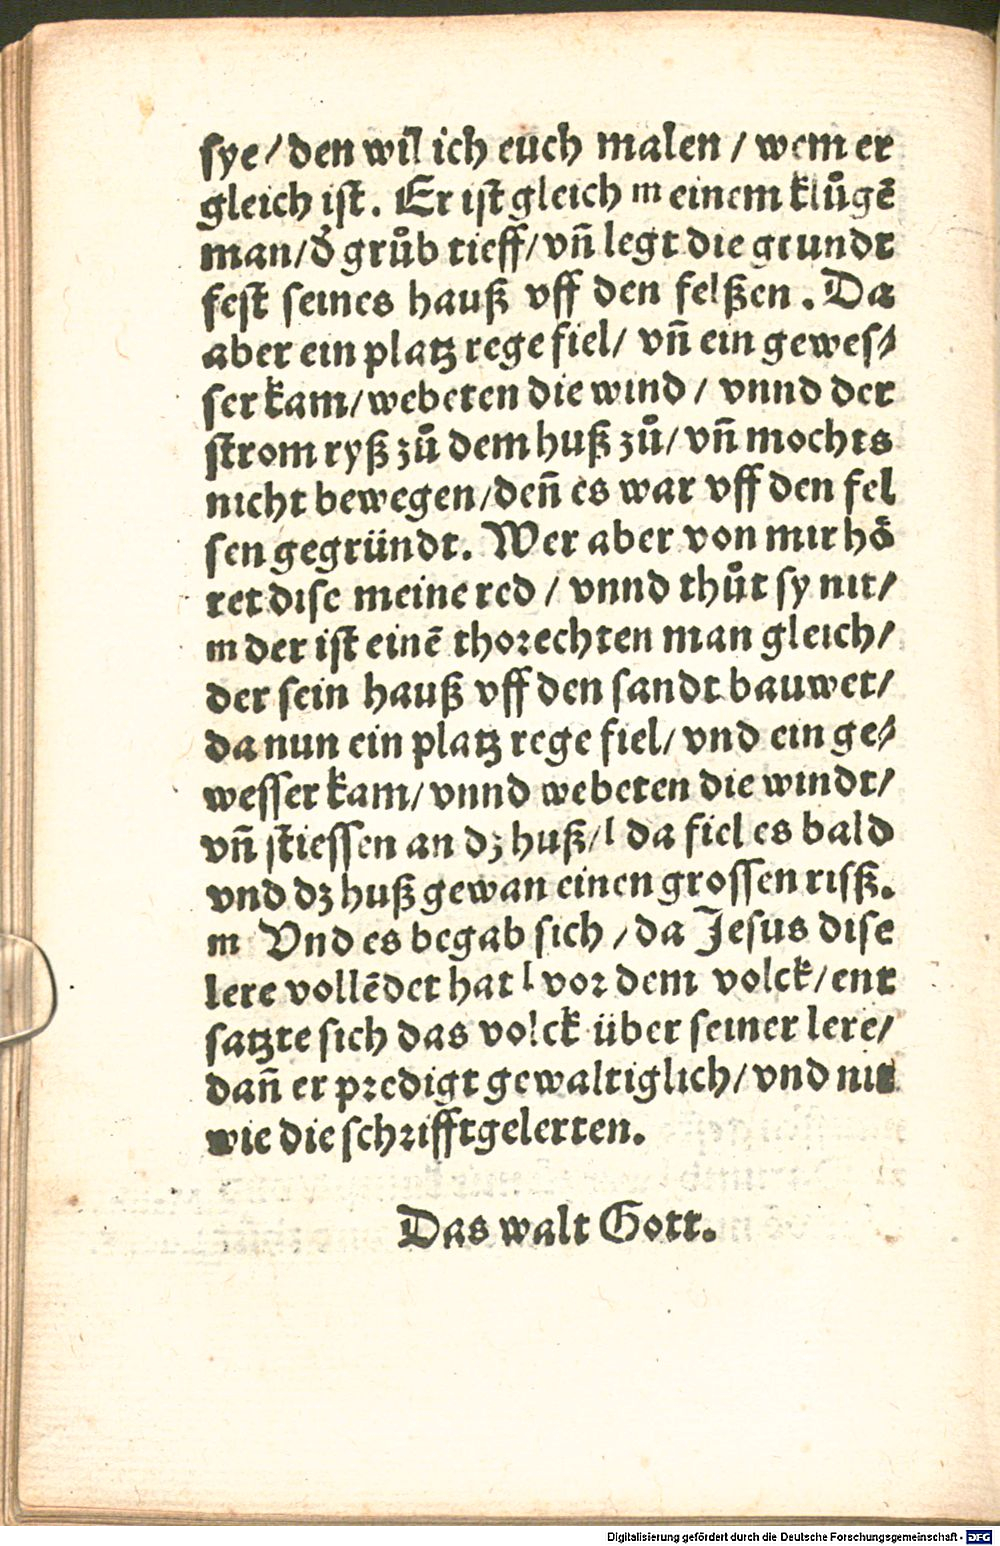 sye/ den wil ich euch malen / wem er
gleich ist. Er ist gleich m einem klůgē
man/ d̕ grůb tieff/ vn̄ legt die grundt
fest seines hauß vff den felßen. Da
aber ein platz rege fiel/ vn̄ ein gewes⸗
ser kam/ webeten die wind / vnnd der
strom ryß zů dem huß zů/ vn̄ mochts
nicht bewegen/ den̄ es war vff den fel
sen gegründt. Wer aber von mir hö
ret dise meine red / vnnd thůt sy nit/
m der ist einē thorechten man gleich/
der sein hauß vff den sandt bauwet/
da nun ein platz rege fiel/ vnd ein ge⸗
wesser kam/ vnnd webeten die windt/
vn̄ stiessen an dz huß/ l da fiel es bald
vnd dz huß gewan einen grossen risß.
m Vnd es begab sich / da Jesus dise
lere vollēdet hat l vor dem volck/ ent
satzte sich das volck über seiner lere/
dan̄ er predigt gewaltiglich/ vnd nit
wie die schrifftgelerten.
Das walt Gott.
Digitalisierung gefördert durch die Deutsche Forschungsgemeinschaft - DFG